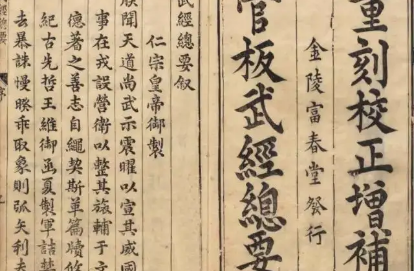 重刻校正增補
金陵富春堂發行
官板武經總要
武經總要叙
仁宗皇帝御製
朕聞天道尚武示震曜以宣其威國
事在戎設營衛以整其旅輔于文
德著之善志自繩契斯革篇牘攸
紀古先哲王維御函夏製軍詰禁
去暴誅慢暌乖取象則弧矢利
序